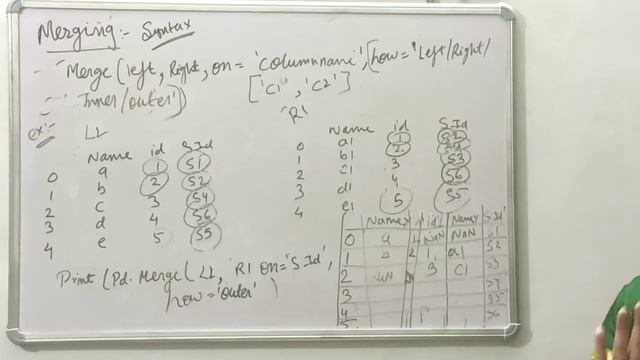 Merging:- Syntax
Merge (left, Right, on = 'columnname', [how='Left/Right/
['C1', 'C2']
Inner/outer'])
ex:- L1
R1
Name id S_Id
0 a 1 S1
1 b 2 S2
2 c 3 S4
3 d 4 S6
4 e 5 S5
Name id S_Id
0 a1 1
1 b1 2
2 c1 3 S3
3 d1 4 S6
4 e1 5 S5
Print (Pd. Merge (L1, R1 on='S_Id',
how='outer')
Namex id Namey S_Id
0 a 1 NaN NaN S1
1 b 2 1 a1 S2
2 3 C1 S3
3
4 S5